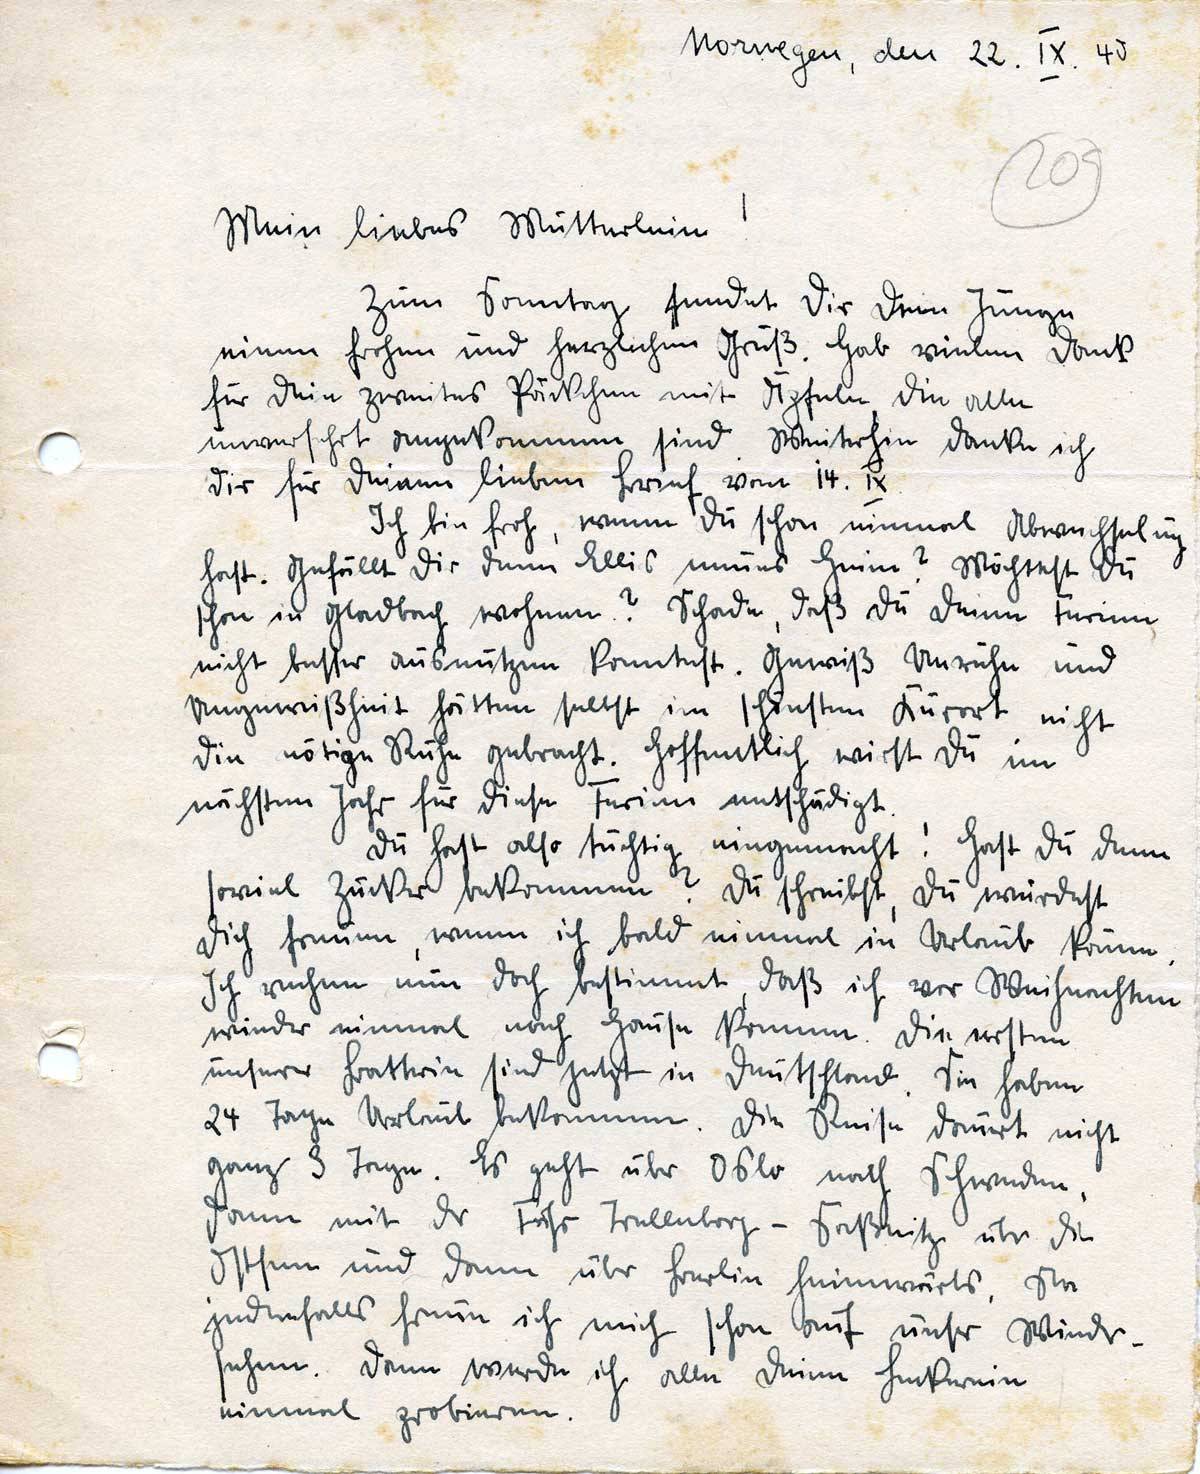 Norwegen, den 22. IX. 40
209
Mein liebes Mütterlein!
Zum Sonntag sendet Dir Dein Junge
einen frohen und herzlichen Gruß. Hab vielen Dank
für Dein zweites Päckchen mit Äpfeln, die alle
unversehrt angekommen sind. Weiterhin danke ich
Dir für Deinen lieben Brief vom 14. IX.
Ich bin froh, wenn Du schon einmal Abwechselung
hast. Gefällt Dir denn Ellis neues Heim? Möchtest Du
schon in Gladbach wohnen? Schade, daß Du Deine Ferien
nicht besser ausnutzen konntest. Gewiß Unruhe und
Ungewißheit hätten selbst im schönsten Kurort nicht
die nötige Ruhe gebracht. Hoffentlich wirst Du im
nächsten Jahr für diese Ferien entschädigt.
Du hast also tüchtig eingemacht! Hast Du denn
soviel Zucker bekommen? Du schreibst, Du würdest
Dich freuen, wenn ich bald einmal in Urlaub käme.
Ich rechne nun doch bestimmt, daß ich vor Weihnachten
wieder einmal nach Hause komme. Die ersten
unserer Batterie sind jetzt in Deutschland. Sie haben
24 Tage Urlaub bekommen. Die Reise dauert nicht
ganz 3 Tage. Es geht über Oslo nach Schweden,
dann mit der Fähr Trelleborg - Saßnitz über die
Ostsee und dann über Berlin heimwärts. Na
jedenfalls freue ich mich schon auf unser Wieder-
sehen. Dann werde ich alle Deine
einmal probieren.